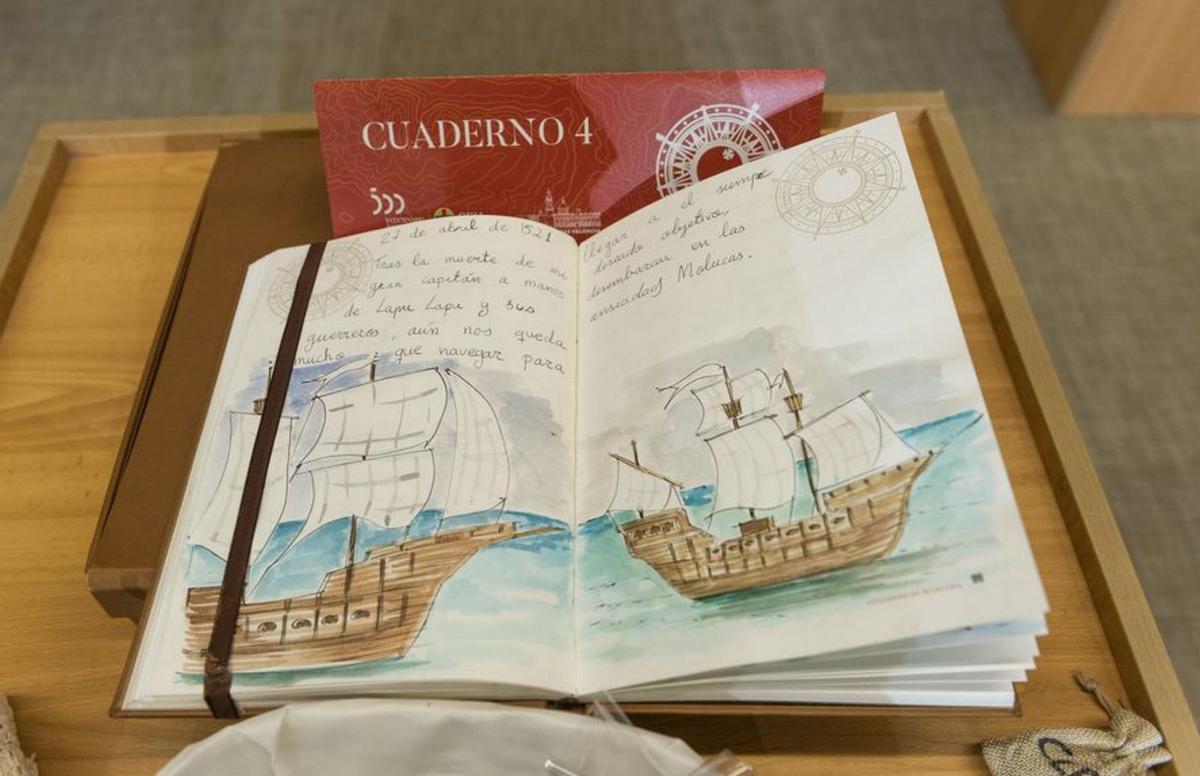 CUADERNO 4
27 de abril de 1521
Tras la muerte de mi
gran capitán a manos
de Lapu Lapu y sus
guerreros, aún nos queda
mucho que navegar para
llegar a el siempre
deseado objetivo,
desembarcar en las
ansiadas Molucas.